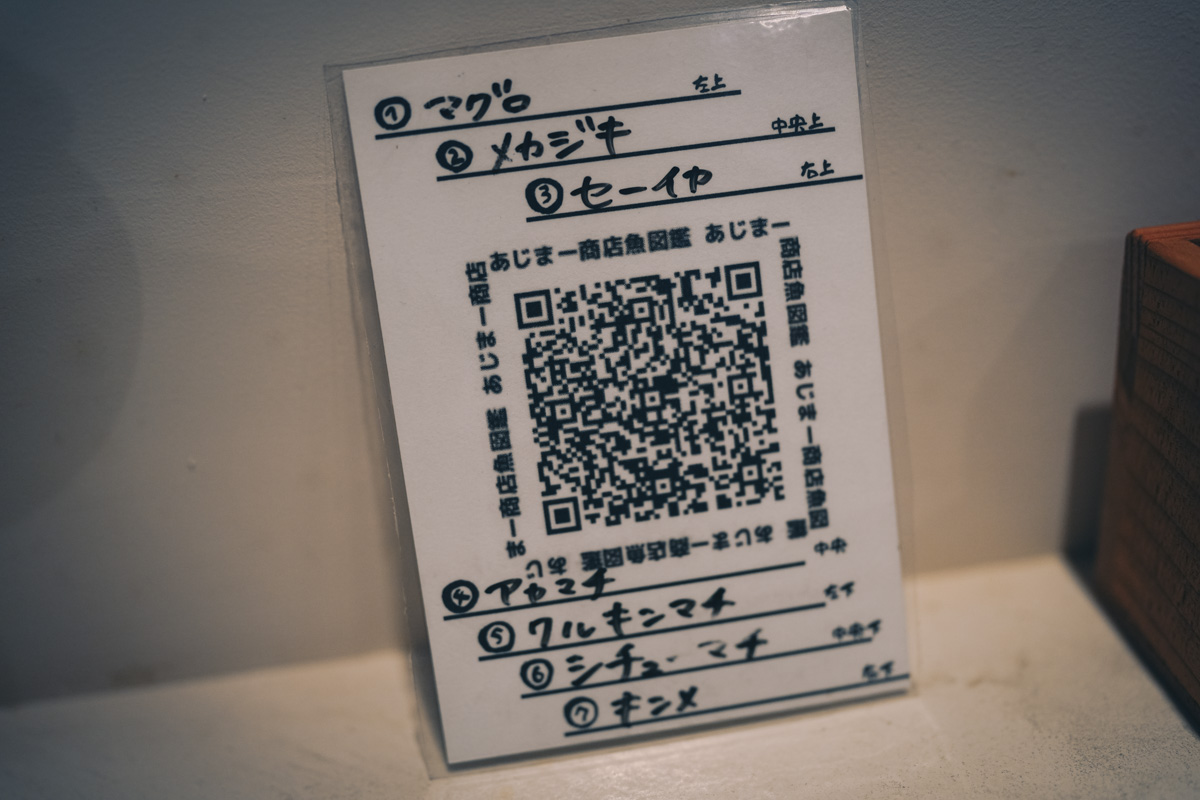 ① マグロ 左上
② メカジキ 中央上
③ セーイカ 右上
あじまー商店魚図鑑 あじまー
商店魚図鑑 あじまー商店魚図
鑑 あじまー商店魚図鑑 あじ
まー商店魚図鑑 あじまー商店
④ アカマチ 中央
⑤ クルキンマチ 左下
⑥ シチューマチ 中央下
⑦ キンメ 右下